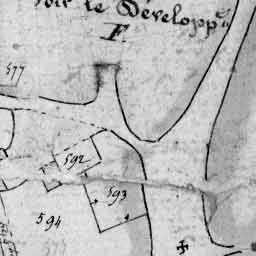 Voir le Développ.t
F
577
592
593
594